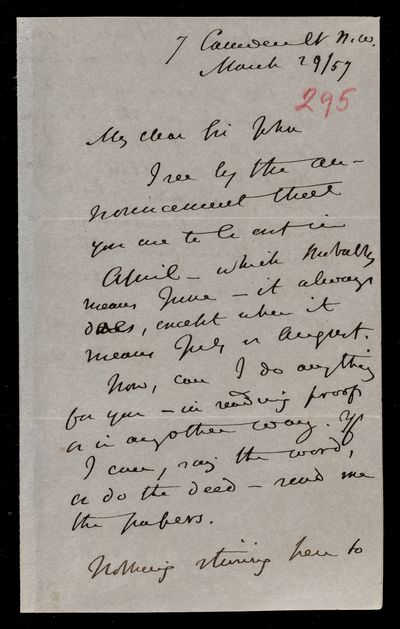 7 Camden St N.W.
March 29/57
295
My dear Sir John
I see by the an-
nouncement that
you are to be out in
April - which probably
means June - it always
does, except when it
means July or August.
Now, can I do anything
for you - in reading proofs
or in any other way. If
I can, say the word,
or do the deed - send me
the papers.
Nothing stirring here to